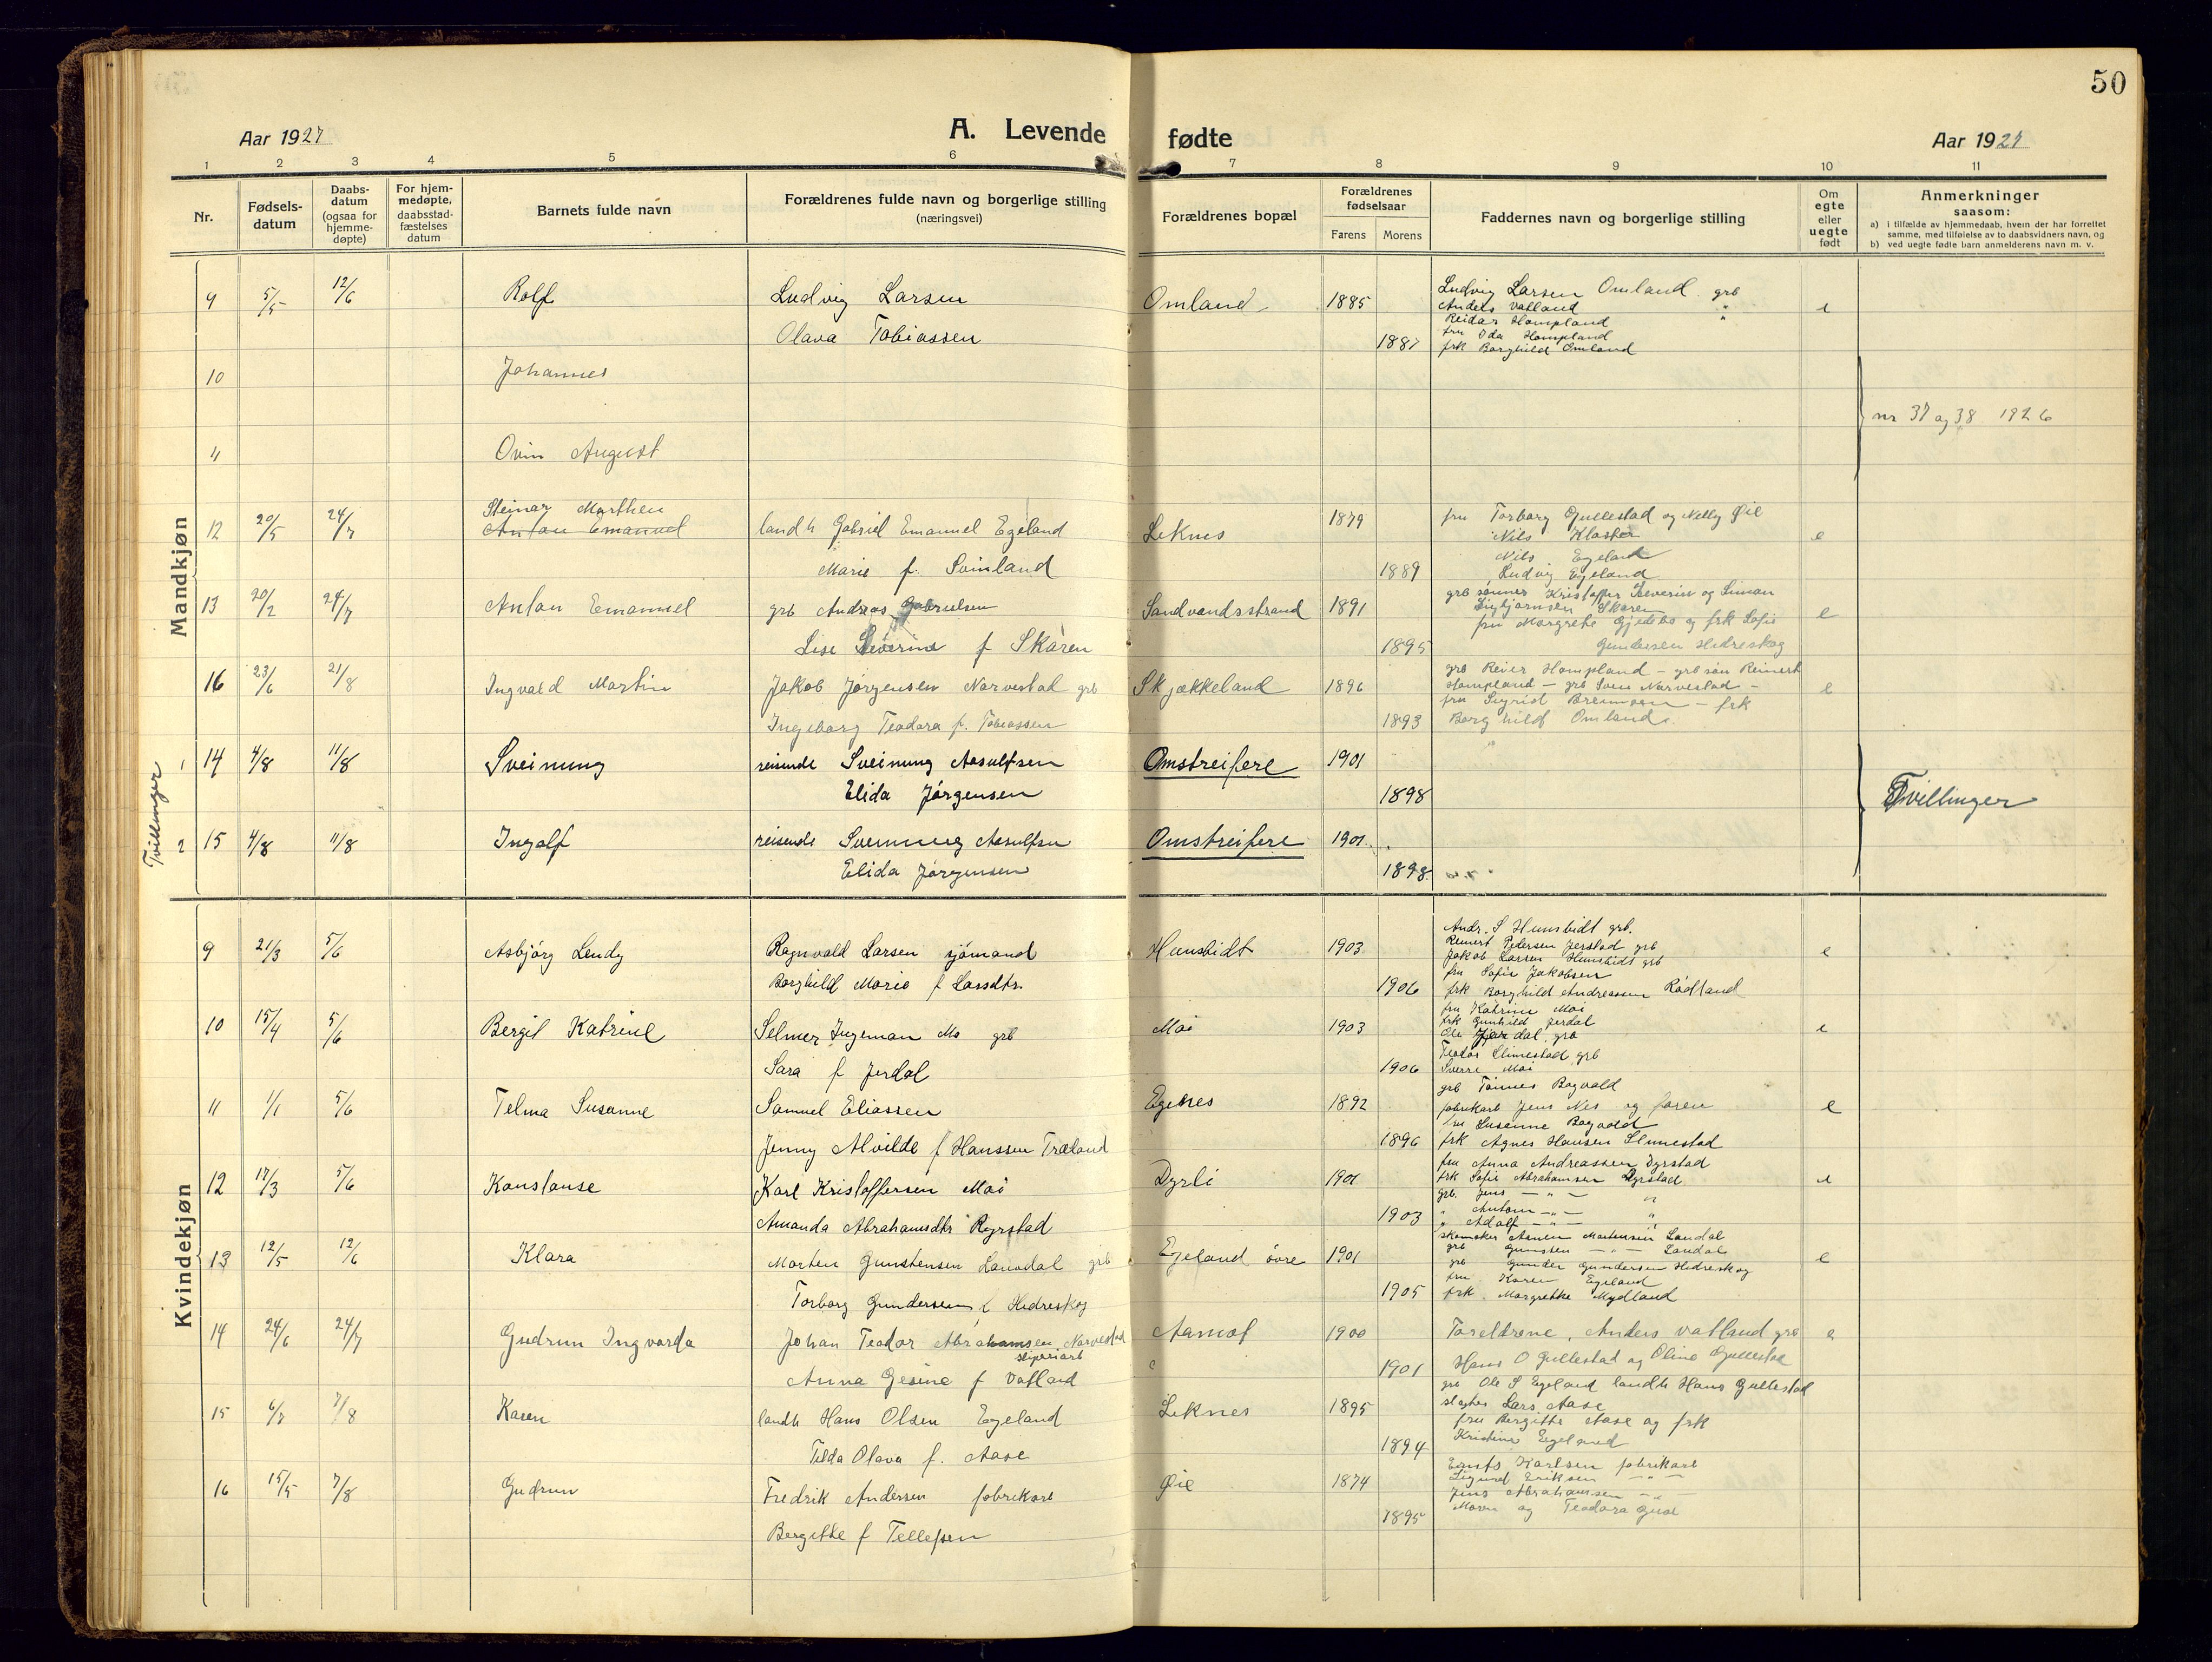 50
Aar 1927
A. Levende fødte
Aar 1927
1 2 3 4 5 6 7 8 9 10 11
Nr.
Fødsels-
datum
Daabs-
datum
(ogsaa for
hjemme-
døpte)
For hjem-
medøpte,
daabsstad-
fæstelses
datum
Barnets fulde navn
Forældrenes fulde navn og borgerlige stilling
(næringsvei)
Forældrenes bopæl
Forældrenes
fødselsaar
Farens Morens
Faddernes navn og borgerlige stilling
Om
egte
eller
uegte
født
Anmerkninger
saasom:
a) i tilfælde av hjemmedaab, hvem der har forrettet
samme, med tilføielse av to daabsvidners navn, og
b) ved uegte fødte barn anmelderens navn m. v.
Mandkjøn
9 5/5 12/6 Rolf Ludvig Larsen Omland 1885 Ludvig Larsen Omland grb e
Anders Vatland "
Reidar Hompland "
Olava Tobiassen 1887 fru Ida Hompland
frk Borghild Omland
10 Johannes
nr 37 og 38 1926
11 Ovin August
Steinar Marthen
12 20/5 24/7 Anton Emanuel landh Gabriel Emanuel Egeland Leknes 1879 fru Torborg Gullestad og Nelly Øie e
Nils Kloster
Nils Egeland
Marie f. Svinland 1889 Ludvig Egeland
13 20/2 24/7 Anton Emanuel grb Andreas Gabrielsen Sandvandsstrand 1891 grb sønner Kristoffer Severin og Simon e
Sigbjørnsen Skaren
fru Margrete Gjedsbo og frk Sofie
Lise Severine f Skåren 1895 Gundersen Hedreskog
16 23/6 21/8 Ingvald Martin Jakob Jørgensen Narvestad grb Skjækkeland 1896 grb Reier Hompland - grb søn Reinert e
Hompland - grb Sven Narvestad -
fru Sigrid - frk
Ingeborg Teodora f. Tobiassen 1893 Borghild Omland.
Tvillinger
1 14 4/8 11/8 Sveinung reisende Sveinung Aasulfsen Omstreifere 1901
Elida Jørgensen 1898
Tvillinger
2 15 4/8 11/8 Ingolf reisende Sveinung Aasulfsen Omstreifere 1901
Elida Jørgensen 1898
Kvindekjøn
9 21/3 5/6 Asbjørg Lendy Ragnvald Larsen sjömand Hunsbidt 1903 Andr. S Hunsbidt grb. e
Reinert Pedersen Jerstad grb
Jakob Larsen Hunsbidt grb
fru Sofie Jakobsen
Borghild Marie f Larsdtr. 1906 frk Borghild Andreassen Rødland
10 15/4 5/6 Bergit Katrine Selmer Ingeman Mo grb Moi 1903 fru Katrine Moi e
frk Gunhild Jerdal
Ole Jerdal grb
Teodor Slimestad grb
Sara f Jerdal 1906 Sverre Moi
11 1/1 5/6 Telma Susanne Samuel Eliassen Egenes 1892 grb Tønnes Bogvald e
fabrikarb Jens Nes og faren
fru Susanne Bogvald
Jenny Alvilde f Hanssen Træland 1896 frk Agnes Hansen Slimestad
12 17/3 5/6 Konstanse Karl Kristoffersen Moi Dyrli 1901 fru Anna Andreassen Dyrstad e
frk Sofie Abrahamsen Dyrstad
grb. Jens - " - "
" Antom - " - "
Amanda Abrahamsdtr Ryrstad 1903 " Adolf - " - "
13 12/5 12/6 Klara Morten Gunstensen Landdal grb Egeland øvre 1901 skomaker Aanen Martensen Landal e
grb Gunsten - " - Landal
grb Gunder Gundersen Hedreskog
fru Karen Egeland
Torborg Gundersen f Hedreskog 1905 frk. Margrethe Mydland
14 24/6 24/7 Gudrun Ingvarda Johan Teodor Abrahamsen Narvestad Aamot 1900 Foreldrene, Anders Vatland grb e
sliperiarb
Anna Gesine f Vatland 1901 Hans O Gullestad og Oline Gullestad
15 6/7 7/8 Karen landh Hans Olsen Egeland Leknes 1895 grb Ole S Egeland landh Hans Gullestad
slagter Lars Aase
fru Bergitte Aase og frk
Tilda Olava f. Aase 1894 Kristine Egeland
16 15/5 7/8 Gudrun Fredrik Andersen fabrikarb Øie 1874 Karlsen fabrikarb
Sigurd Eriksen - " -
Jens Abrahamsen - " -
Bergitte f Tellefsen 1895 Moren og Teodora